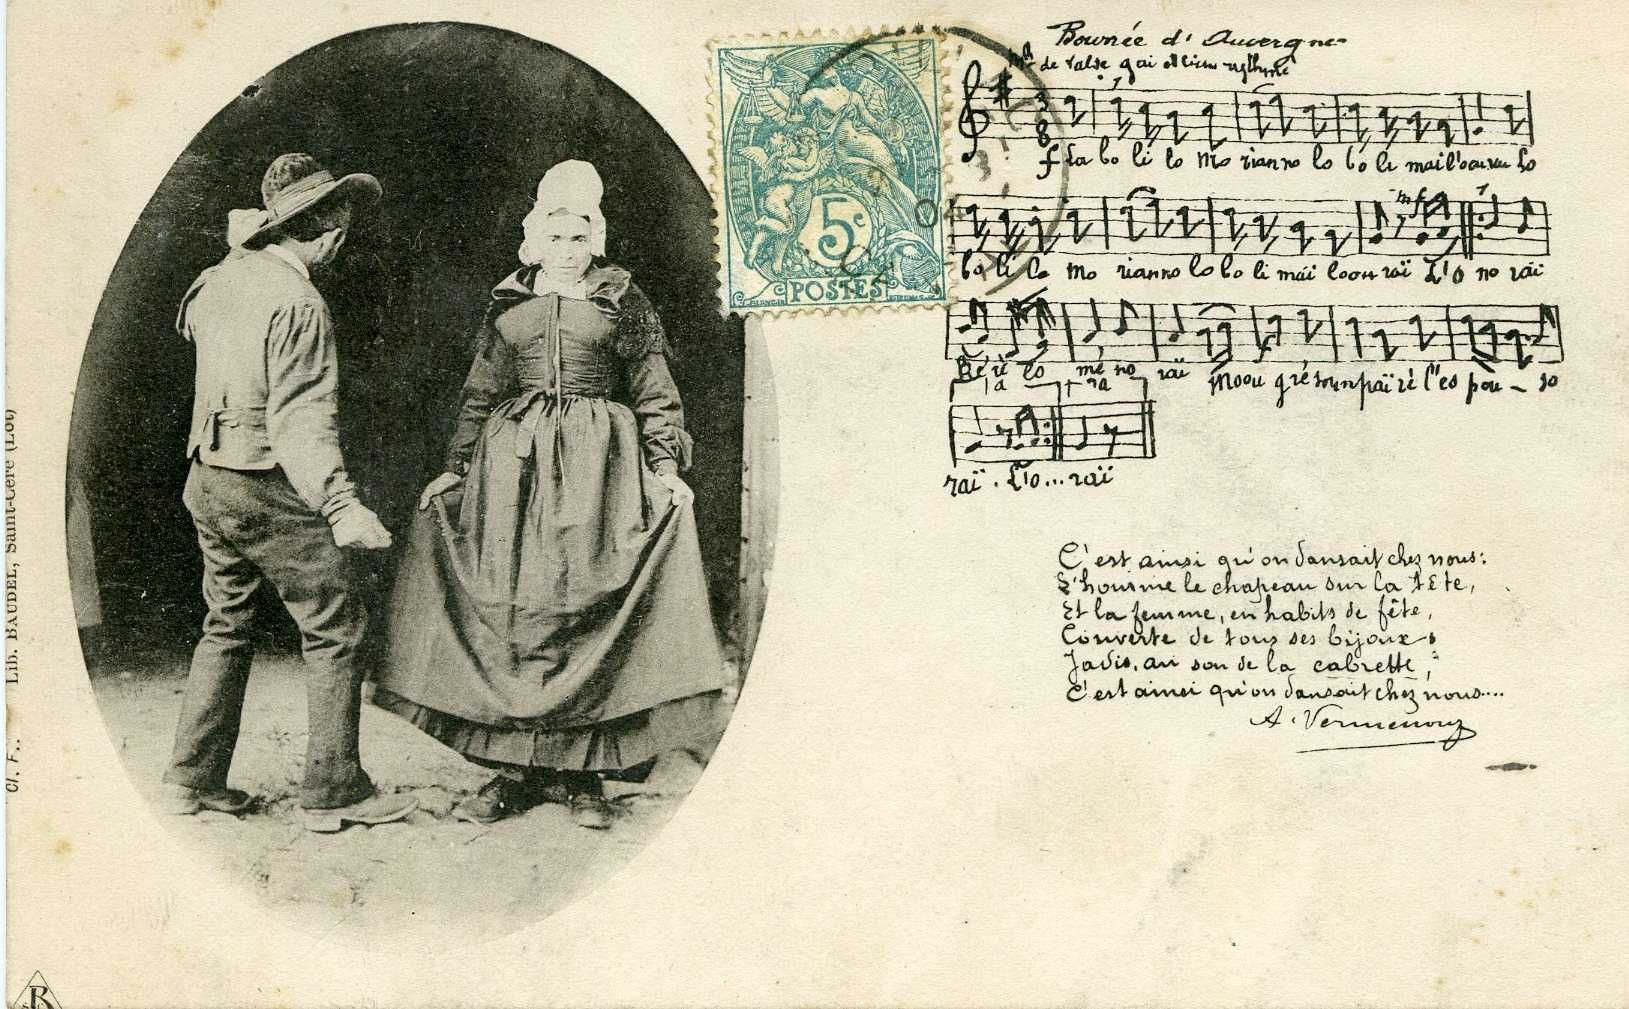 Bourrée d'Auvergne
Mt de valse gai et bien rythmé
3
8
f Lo bo li lo Mo rianno lo bo li mai l'ourou lo
mf
bo li lo mo rianno lo bo li mai loou raï L'o no raï
rè lo mé no raï Moou gré soun païré l'es pou - so
1a 2a
raï . L'o... raï
C'est ainsi qu'on dansait chez nous:
L'homme le chapeau sur la tête,
Et la femme, en habits de fête,
Couverte de tous ses bijoux;
Jadis, au son de la cabrette,
C'est ainsi qu'on dansait chez nous....
A. Vermenouz
5c
POSTES
04
Lib. BAUDEL, Saint-Céré (Lot)
Cl. F..
B